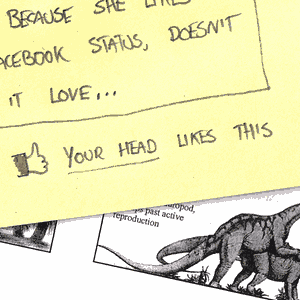 BECAUSE SHE LIKES
FACEBOOK STATUS, DOESN'T
IT LOVE...
YOUR HEAD LIKES THIS
past active
reproduction